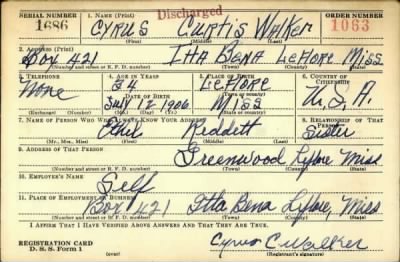 SERIAL NUMBER 1. NAME (Print) Discharged ORDER NUMBER
1686 CYRUS Curtis Walker 1063
(First) (Middle) (Last)
2. ADDRESS (Print)
Box 421 Itta Bena Leflore Miss
(Number and street or R. F. D. number) (Town) (County) (State)
3. TELEPHONE 4. AGE IN YEARS 5. PLACE OF BIRTH 6. COUNTRY OF CITIZENSHIP
None 34 Leflore
DATE OF BIRTH (Town or county)
July 12 1906 Miss U.S.A.
(Exchange) (Number) (Mo.) (Day) (Yr.) (State or country)
7. NAME OF PERSON WHO WILL ALWAYS KNOW YOUR ADDRESS 8. RELATIONSHIP OF THAT PERSON
Reddett Sister
(Mr., Mrs., Miss) (First) (Middle) (Last)
9. ADDRESS OF THAT PERSON
Greenwood Leflore Miss
(Number and street or R. F. D. number) (Town) (County) (State)
10. EMPLOYER'S NAME
Self
11. PLACE OF EMPLOYMENT OR BUSINESS
Box 421 Itta Bena Leflore, Miss
(Number and street or R. F. D. number) (Town) (County) (State)
I AFFIRM THAT I HAVE VERIFIED ABOVE ANSWERS AND THAT THEY ARE TRUE.
REGISTRATION CARD Cyrus C Walker
D. S. S. Form 1 (over) (Registrant's signature)